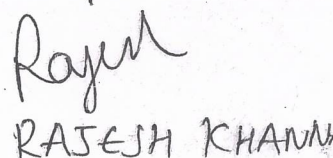 Rajesh
RAJESH KHANN